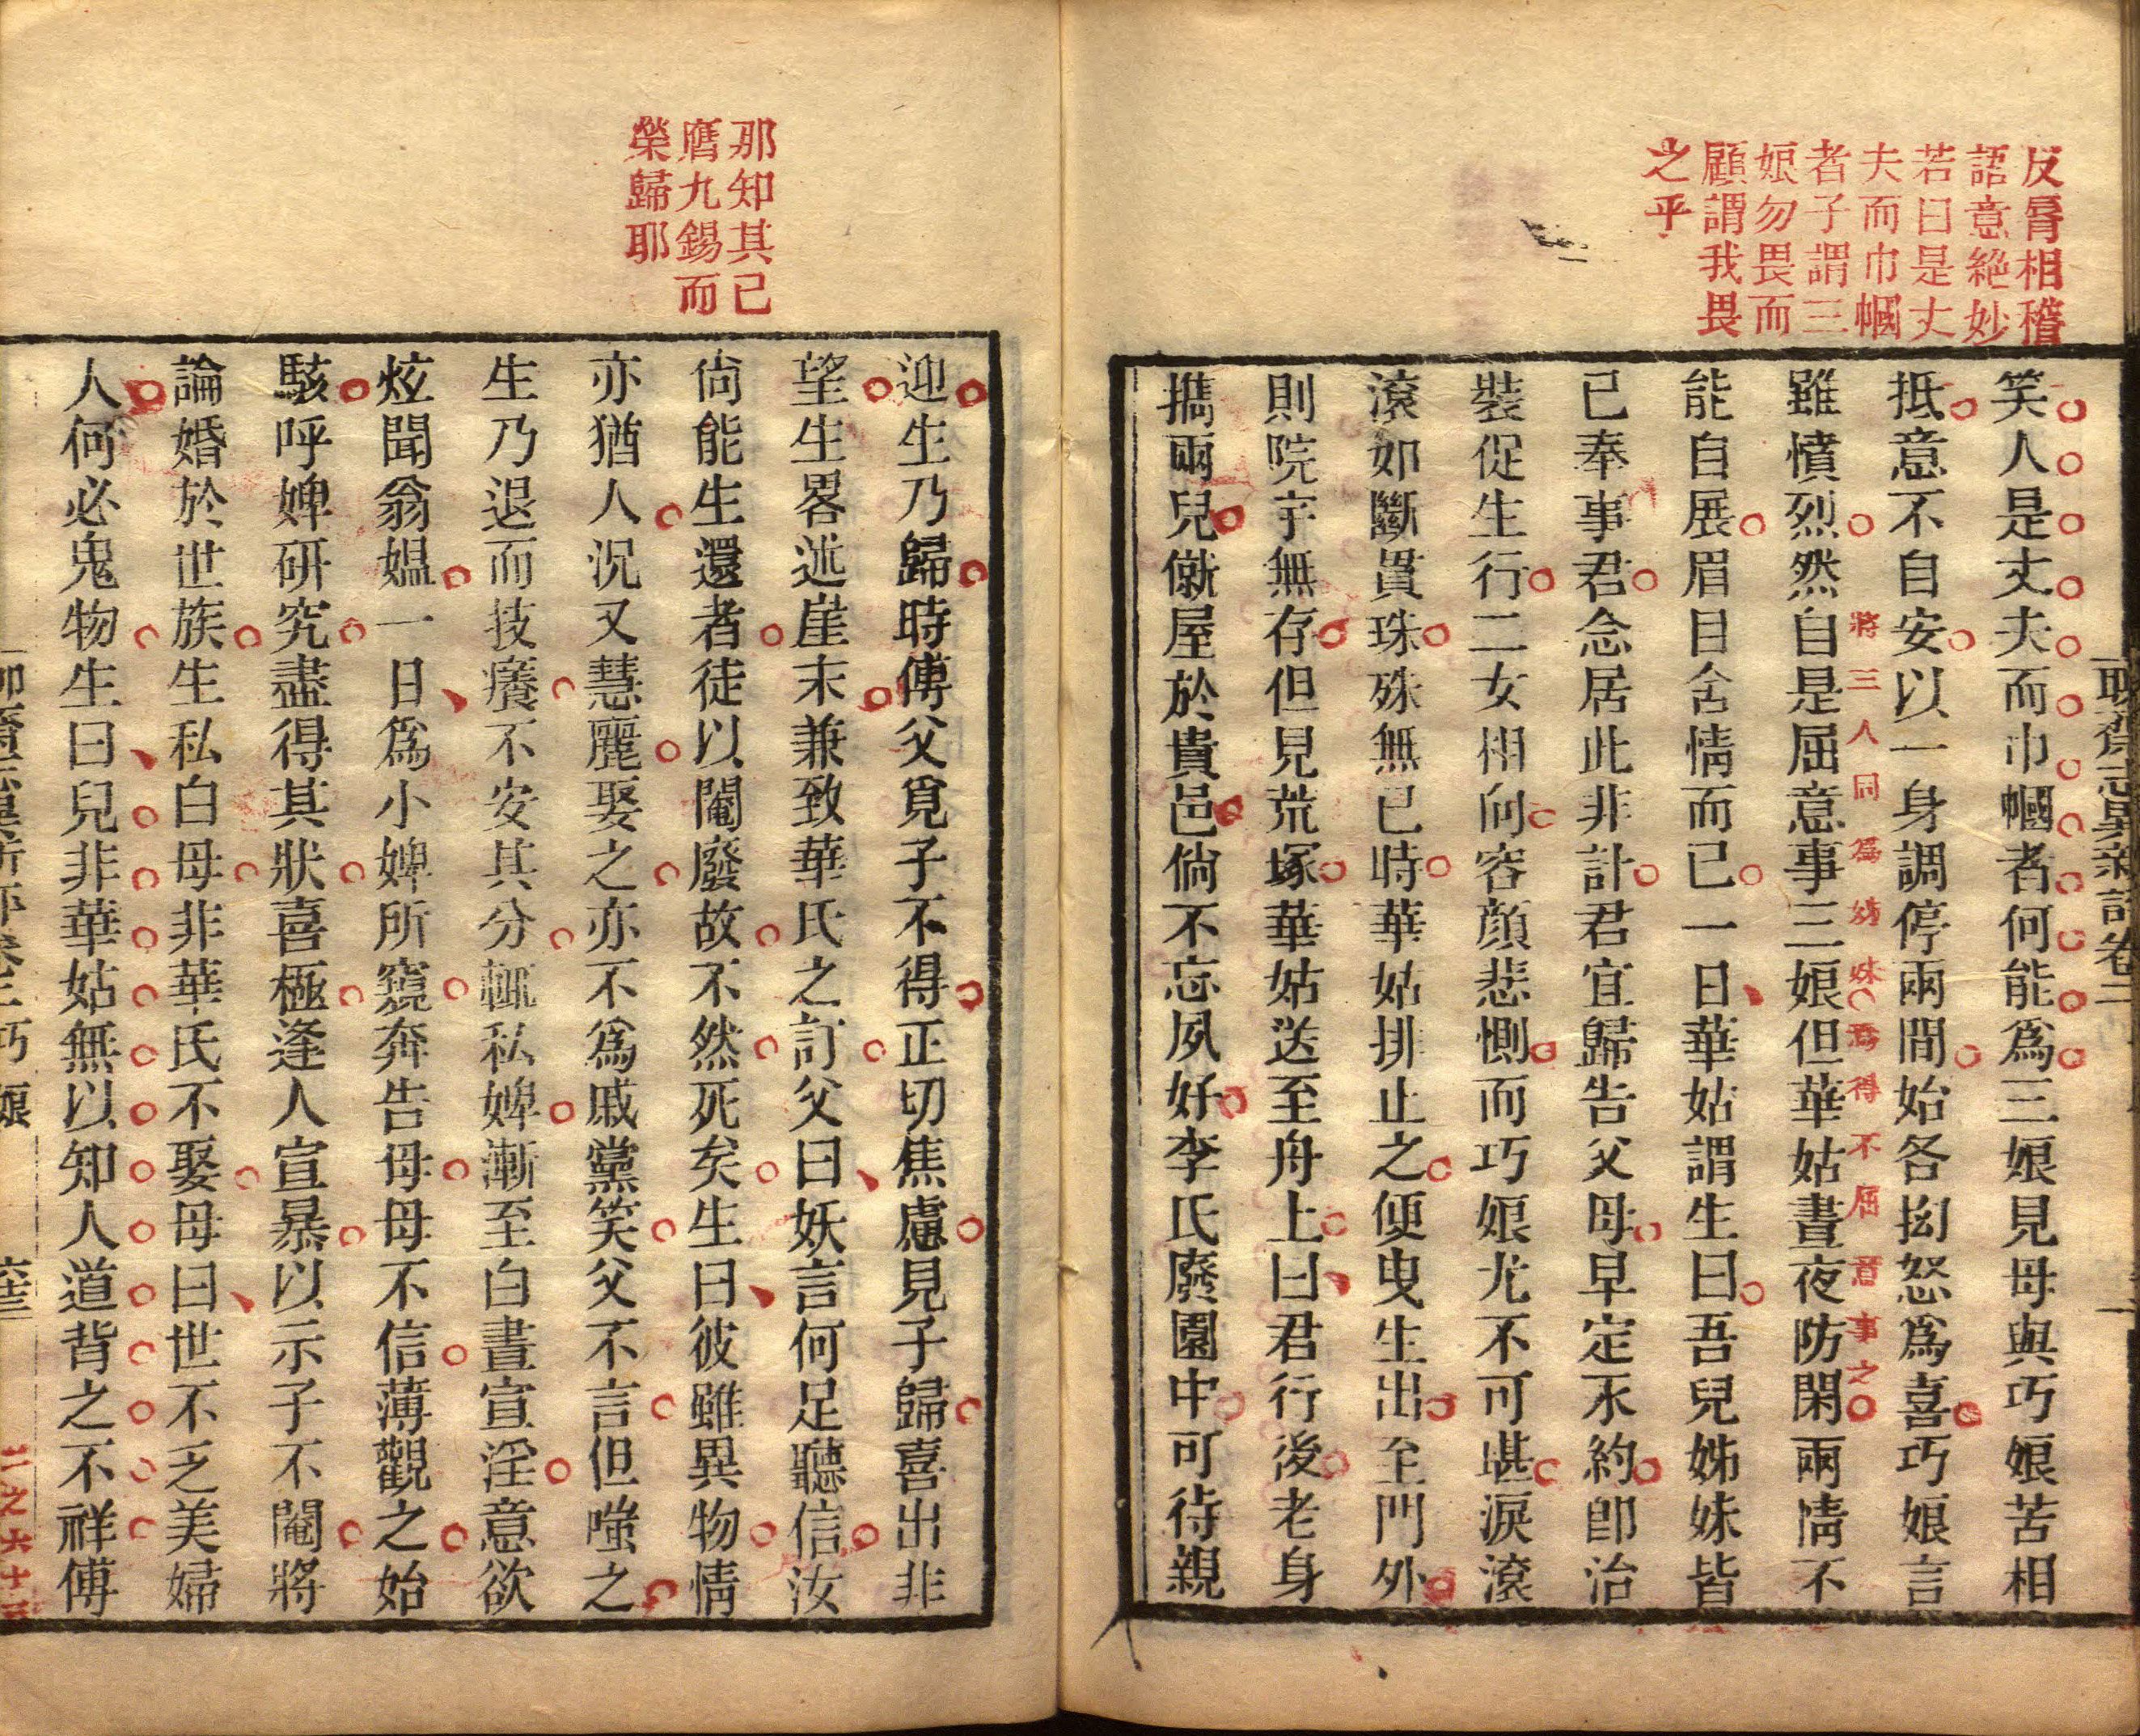 反脣相稽
語意絕妙
若曰是丈
夫而巾幗
者子謂三
娘勿畏而
顧謂我畏
之乎
笑人是丈夫而巾幗者何能爲三娘見母與巧娘苦相
抵意不自安以一身調停兩間始各拗怒爲喜巧娘言
雖憤烈然自是屈意事三娘但華姑晝夜防閑兩情不
將三人同爲姊妹焉得不屈意事之
能自展眉目含情而已一日華姑謂生曰吾兒姊妹皆
已奉事君念居此非計君宜歸告父母早定永約卽治
裝促生行二女相向容顏悲惻而巧娘尤不可堪淚滾
滾如斷貫珠殊無已時華姑排止之便曳生出至門外
則院宇無存但見荒塚華姑送至舟上曰君行後老身
擕兩兒僦屋於貴邑倘不忘夙好李氏廢園中可待親
那知其已
膺九錫而
榮歸耶
迎生乃歸時傅父覓子不得正切焦慮見子歸喜出非
望生畧述崖末兼致華氏之訂父曰妖言何足聽信汝
尙能生還者徒以閹廢故不然死矣生曰彼雖異物情
亦猶人況又慧麗娶之亦不爲戚黨笑父不言但嗤之
生乃退而技癢不安其分輒私婢漸至白晝宣淫意欲
炫聞翁媼一日爲小婢所窺奔告母母不信薄觀之始
駭呼婢硏究盡得其狀喜極逢人宣暴以示子不閹將
論婚於世族生私白母非華氏不娶母曰世不乏美婦
人何必鬼物生曰兒非華姑無以知人道背之不祥傅